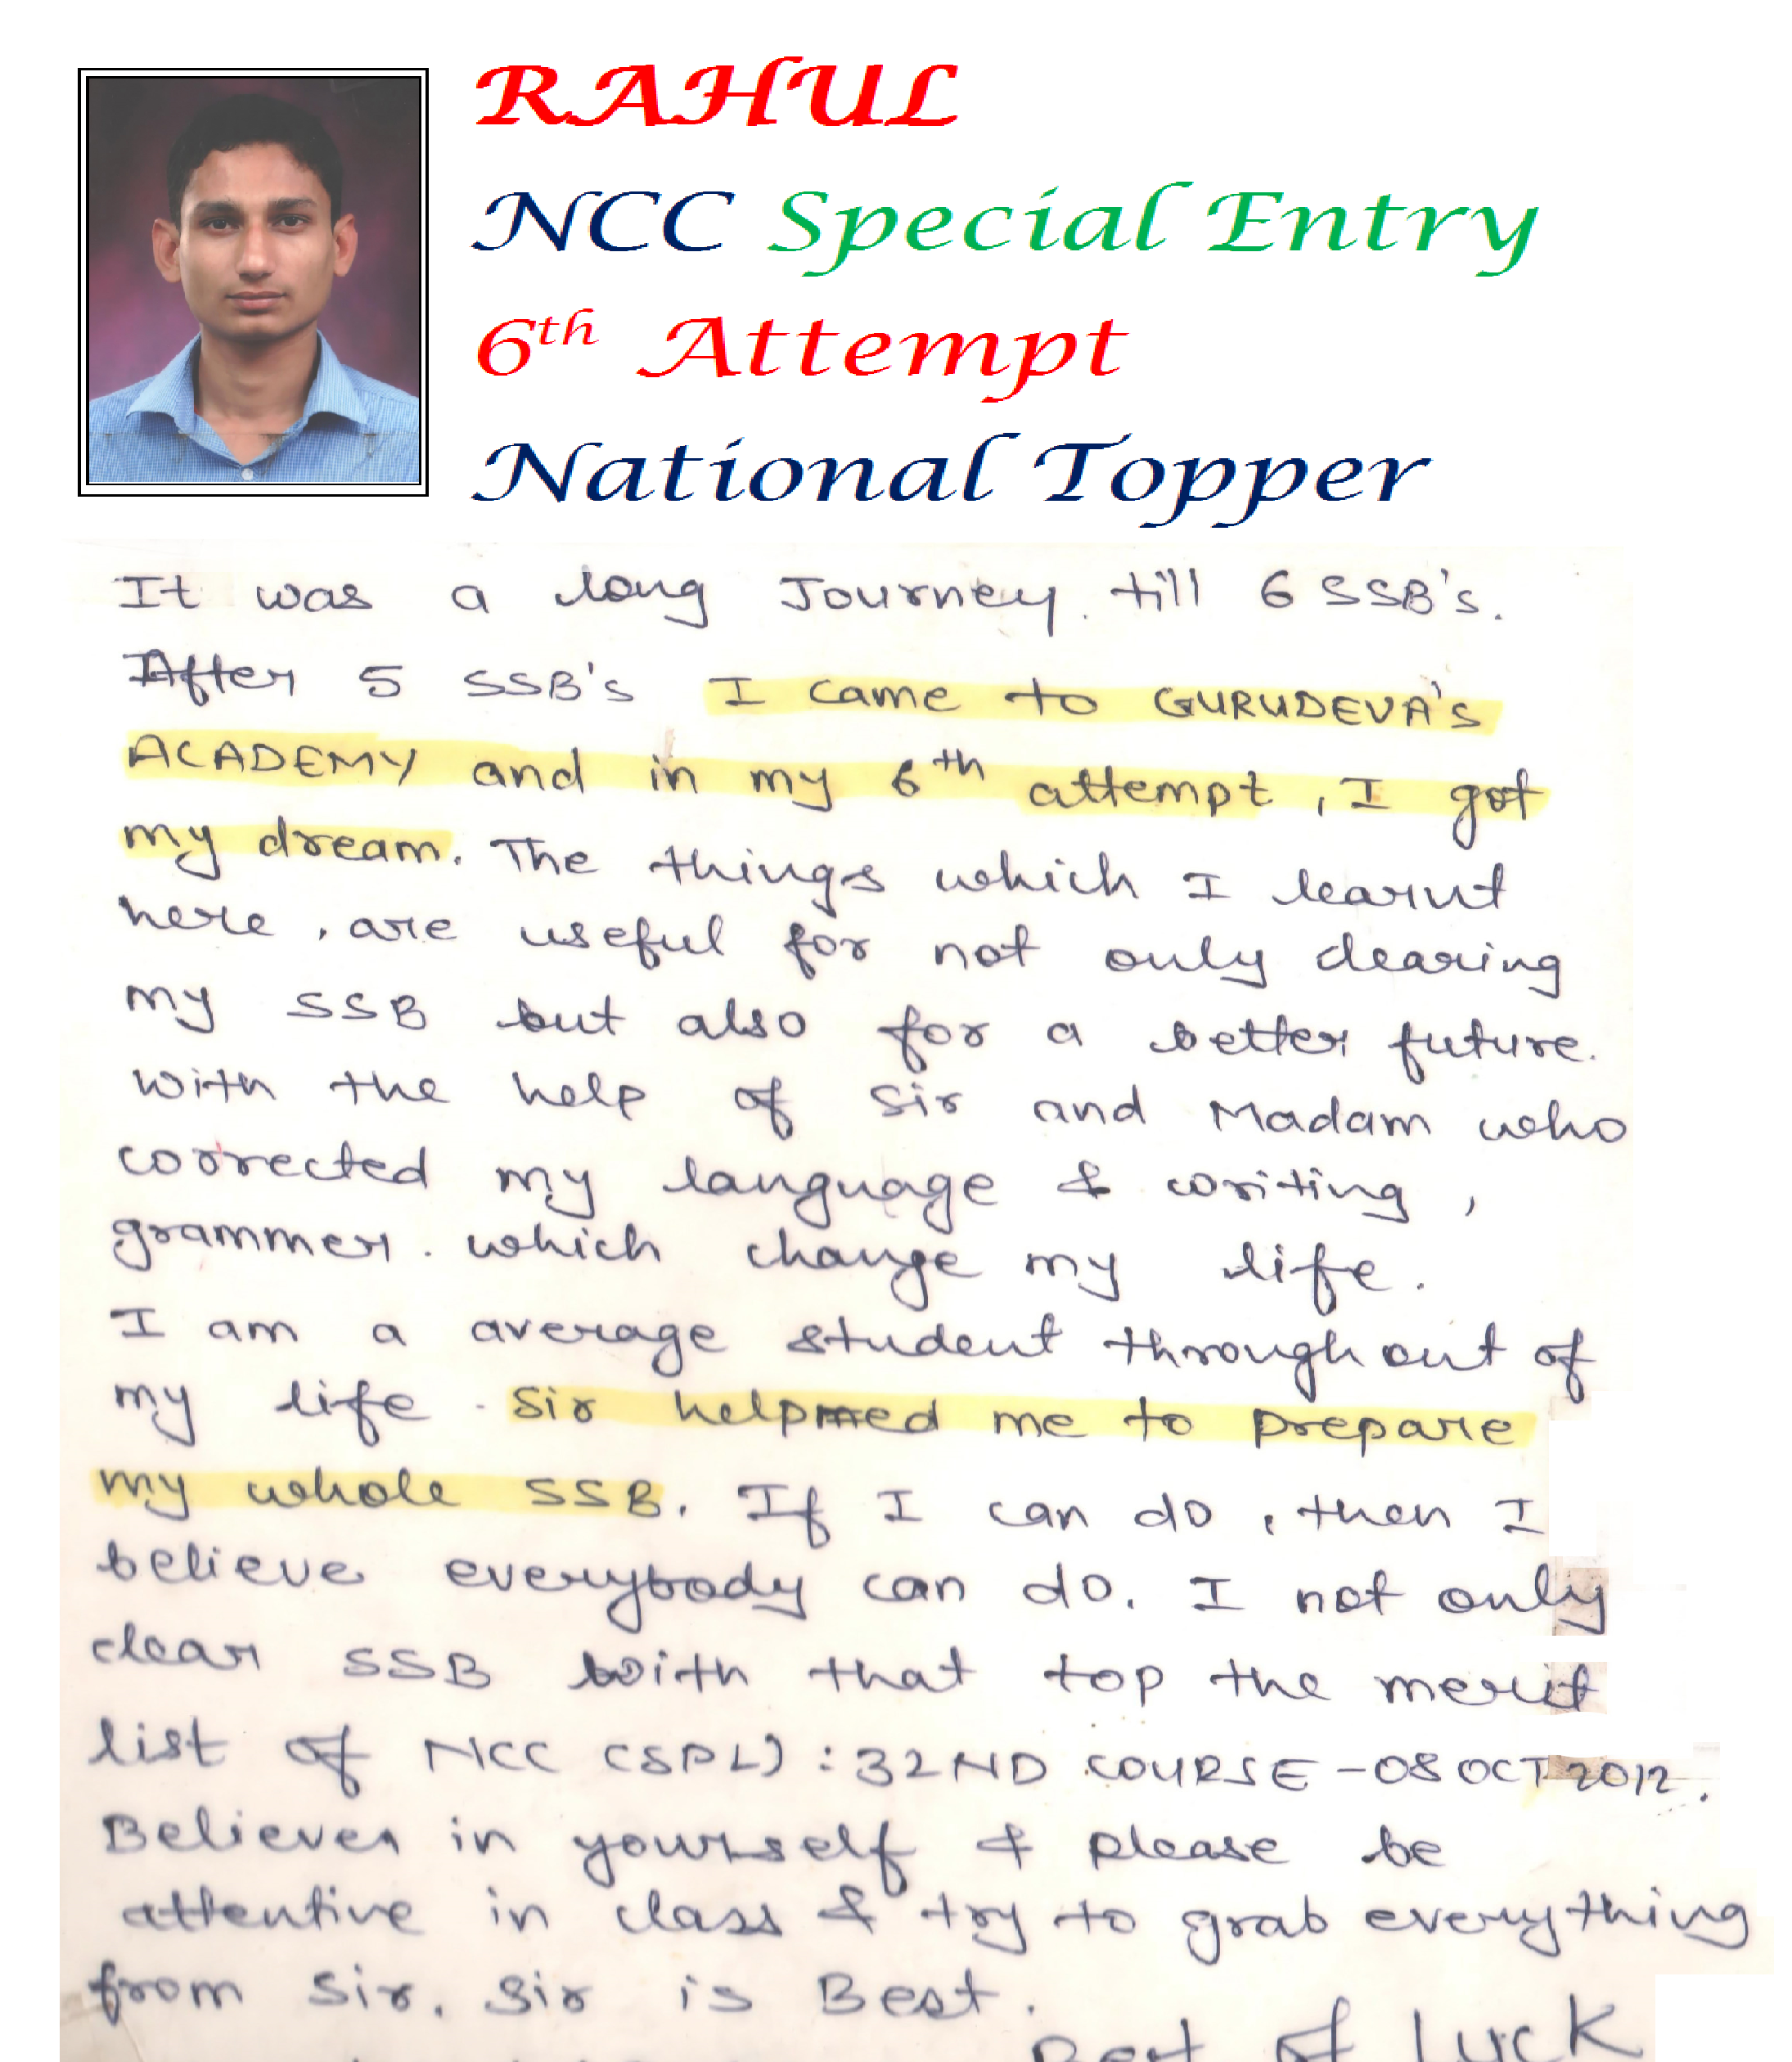 RAHUL
NCC Special Entry
6th Attempt
National Topper
It was a long Journey. till 6 SSB's.
After 5 SSB's I came to GURUDEVA's
ACADEMY and in my 6th attempt, I got
my dream. The things which I learnt
here, are useful for not only clearing
my SSB but also for a better future.
With the help of Sir and Madam who
corrected my language & writing,
grammer. which change my life.
I am a average student throughout of
my life. Sir helped me to prepare
my whole SSB. If I can do, then I
believe everybody can do. I not only
clear SSB with that top the merit
list of NCC (SPL) : 32ND COURSE - 08 OCT 2012.
Believer in yourself & please be
attentive in class & try to grab everything
from Sir. Sir is Best.
Best of Luck